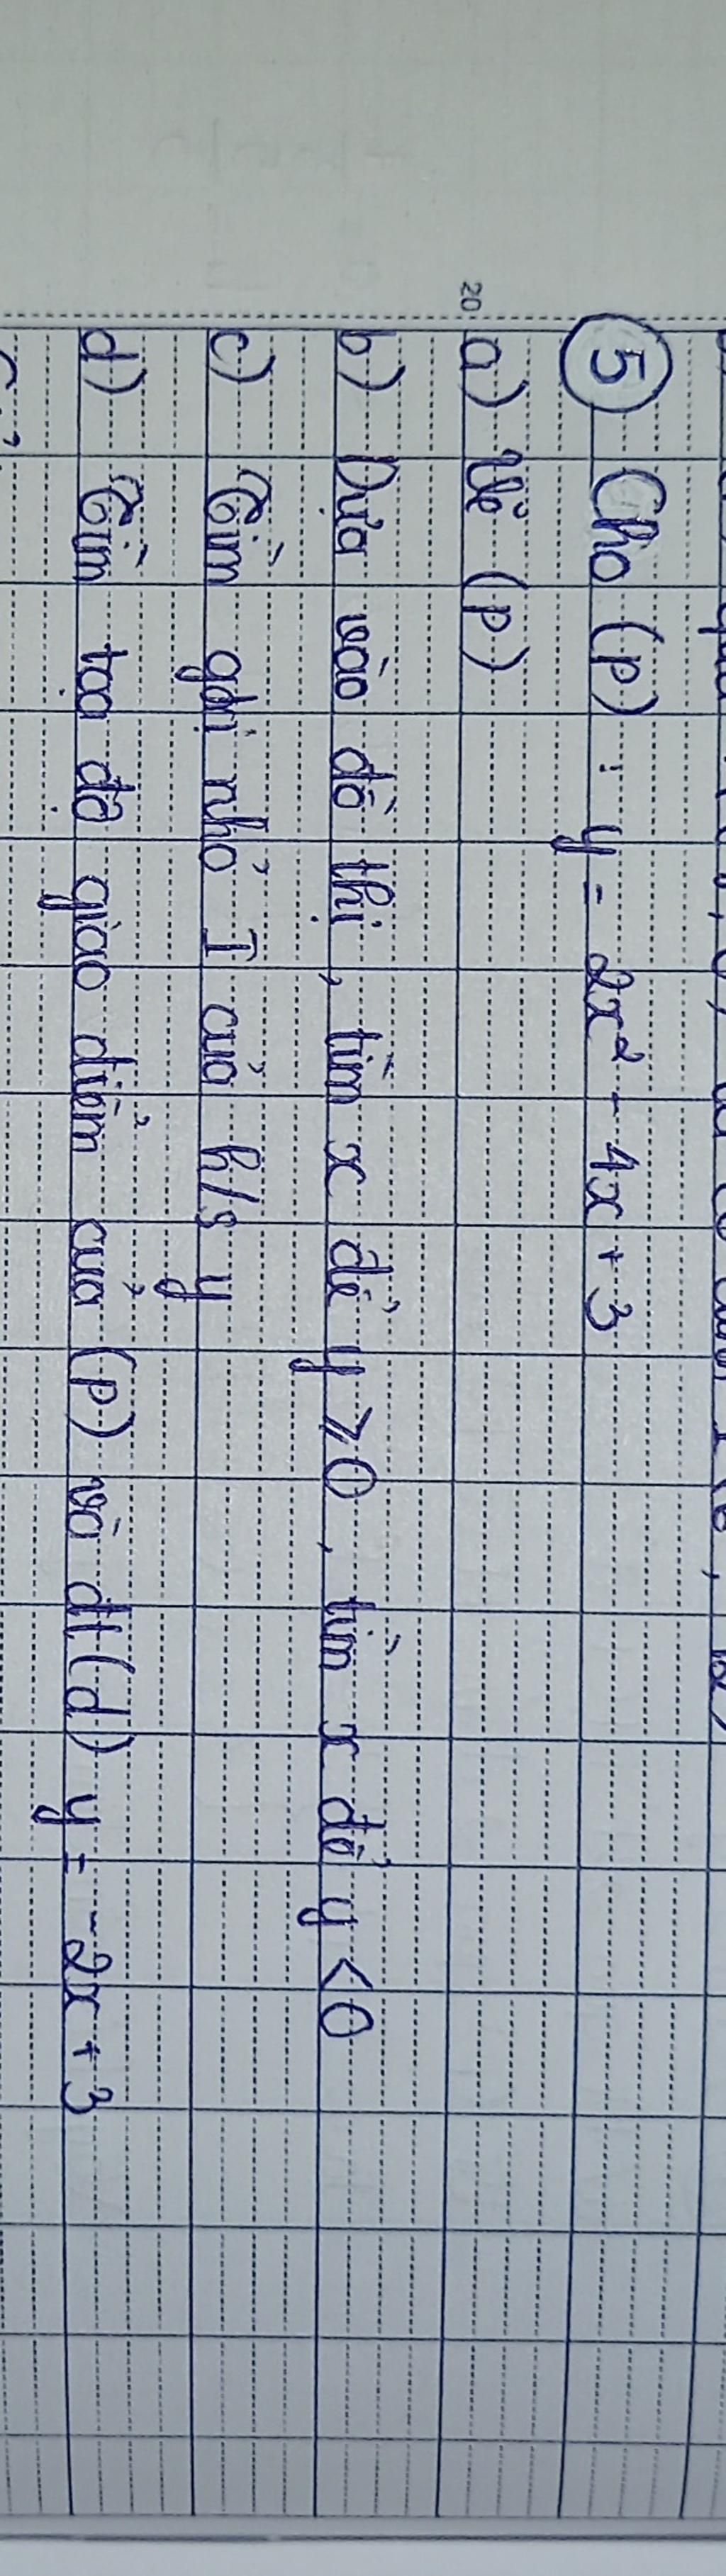 ⑤ Cho (P) : y = 2x² - 4x + 3
20
a) Vẽ (P)
b) Dựa vào đồ thị, tìm x để y ⩾ 0, tìm x để y < 0
c) Tìm gtri nhỏ I của h/s y
d) Tìm tọa độ giao điểm của (P) và đt(d) y = -2x + 3